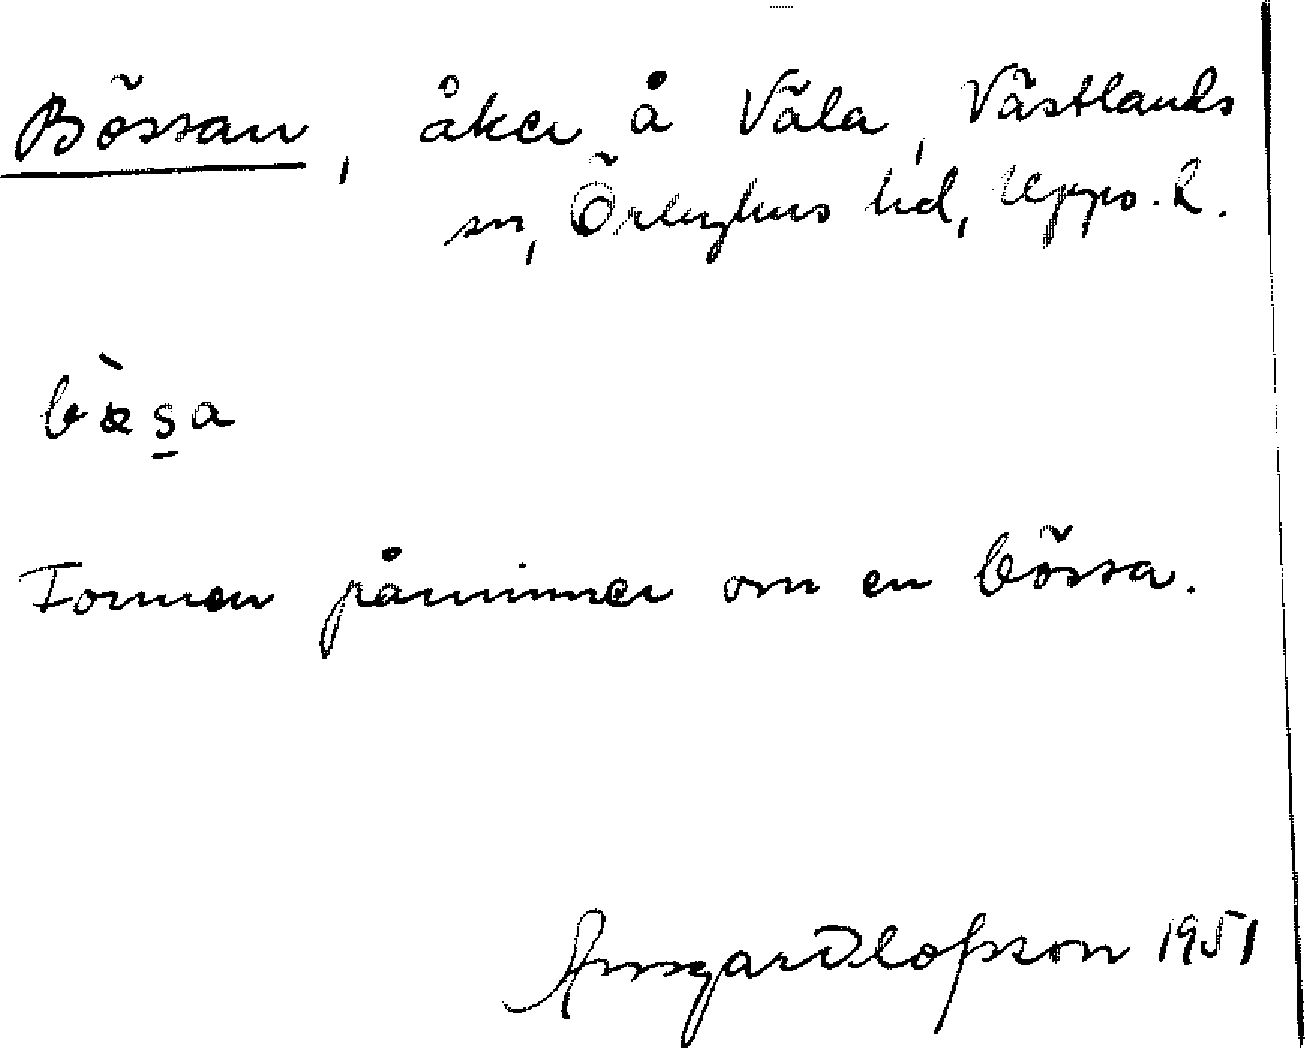 Bössan, åker å Väla, Västlands
sn, Örbyhus hd, Upps. l.
bæ̀s̠a
Formen påminner om en bössa.
Ansgar Olofsson 1951